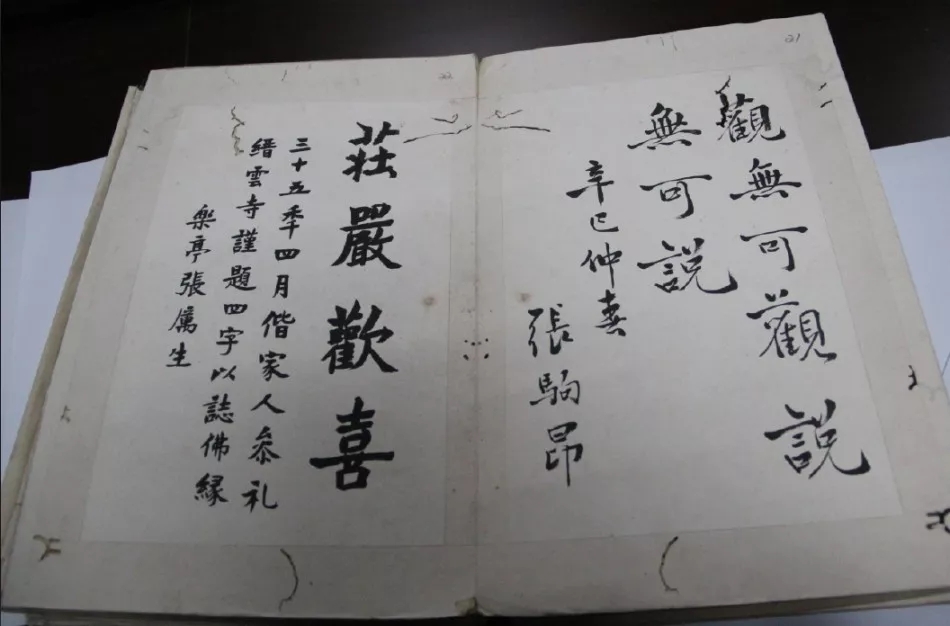 21
觀無可觀說
無可說
辛巳仲春
張駒昂
22
莊嚴歡喜
三十五季四月偕家人叅礼
縉雲寺謹題四字以誌佛緣
樂亭張厲生